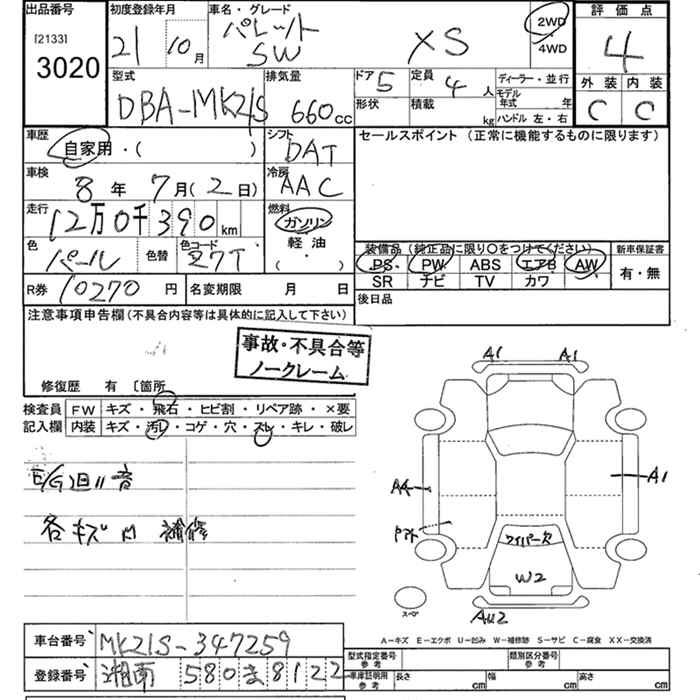 出品番号 初度登録年月 車名・グレード 評価点
[2133] 3020 21 10月 パレット SW XS 2WD 4WD 4
型式 排気量 ドア 5 定員 4人 ディーラー・並行 外装 内装
DBA-MK21S 660cc 形状 積載 kg モデル年式 年 ハンドル 左・右 C C
車歴 自家用・( ) シフト DAT セールスポイント (正常に機能するものに限ります)
車検 8年 7月(2日) 冷房 AAC
走行 12万0千390km 燃料 ガソリン 軽油 ( ・ )
色 パール 色替 色コード Z7T 装備品 (純正品に限り○をつけてください) 新車保証書
PS PW ABS エアB AW 有・無
SR ナビ TV カワ
R券 10270円 名変期限 月 日 後日品
注意事項申告欄(不具合内容等は具体的に記入して下さい)
事故・不具合等
ノークレーム
修復歴 有 〔箇所
検査員 FW キズ・飛石・ヒビ割・リペア跡・×要
記入欄 内装 キズ・汚レ・コゲ・穴・スレ・キレ・破レ
E/G廻り音
各キズ凹 補修
A1 A1
A1
AA
ワイパー欠
W2
スペア
AU2
A-キズ E-エクボ U-凹み W-補修跡 S-サビ C-腐食 XX-交換済
車台番号 MK21S-347259 型式指定番号 参考 類別区分番号 参考
登録番号 湘南 580 ま 8122 車庫証明用 参考 長さ cm 幅 cm 高さ cm